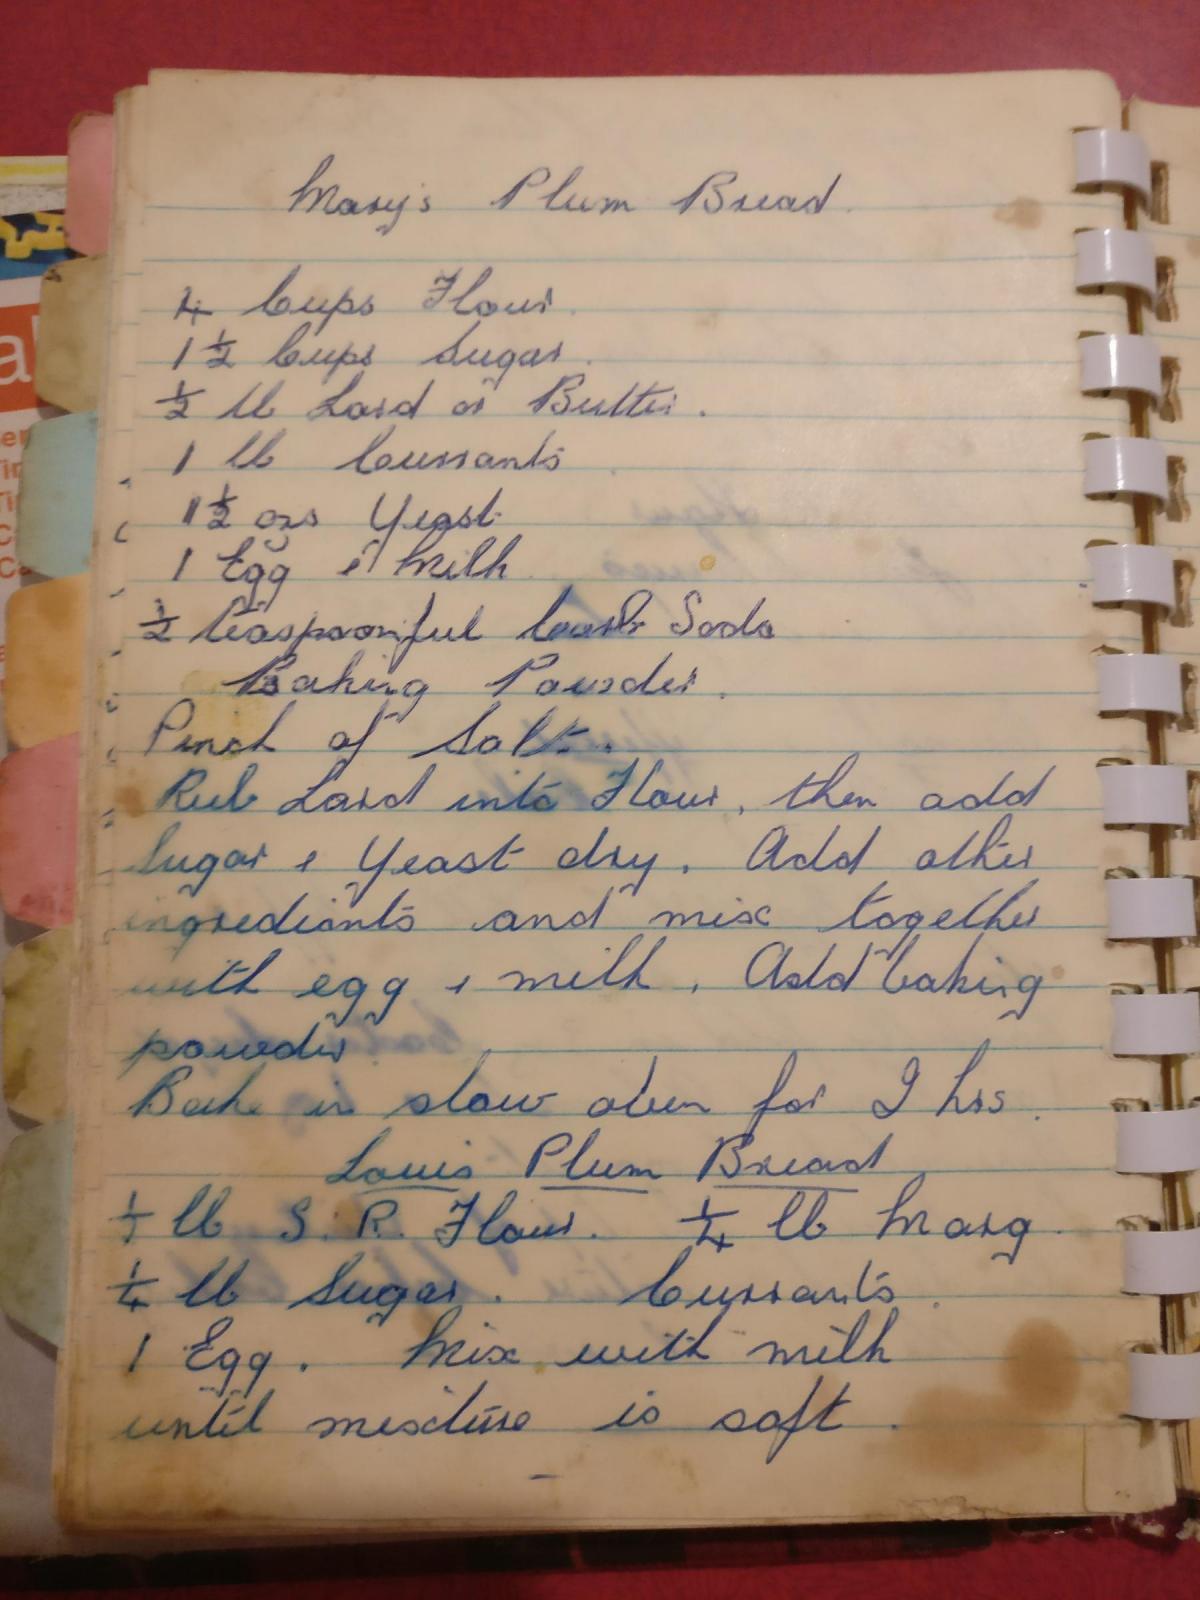 Mary's Plum Bread.
4 Cups Flour.
1 ½ Cups Sugar.
½ lb Lard or Butter.
1 lb Currants
1 ½ ozs Yeast
1 Egg & Milk
½ Teaspoonful Carb Soda
Baking Powder.
Pinch of Salt.
Rub Lard into Flour, then add
Sugar & Yeast dry. Add other
ingredients and mix together
with egg & milk. Add baking
powder
Bake in slow oven for 2 hrs.
Louis Plum Bread
lb S.R. Flour. ¼ lb Marg.
¼ lb Sugar. Currants.
1 Egg. Mix with milk
until mixture is soft.